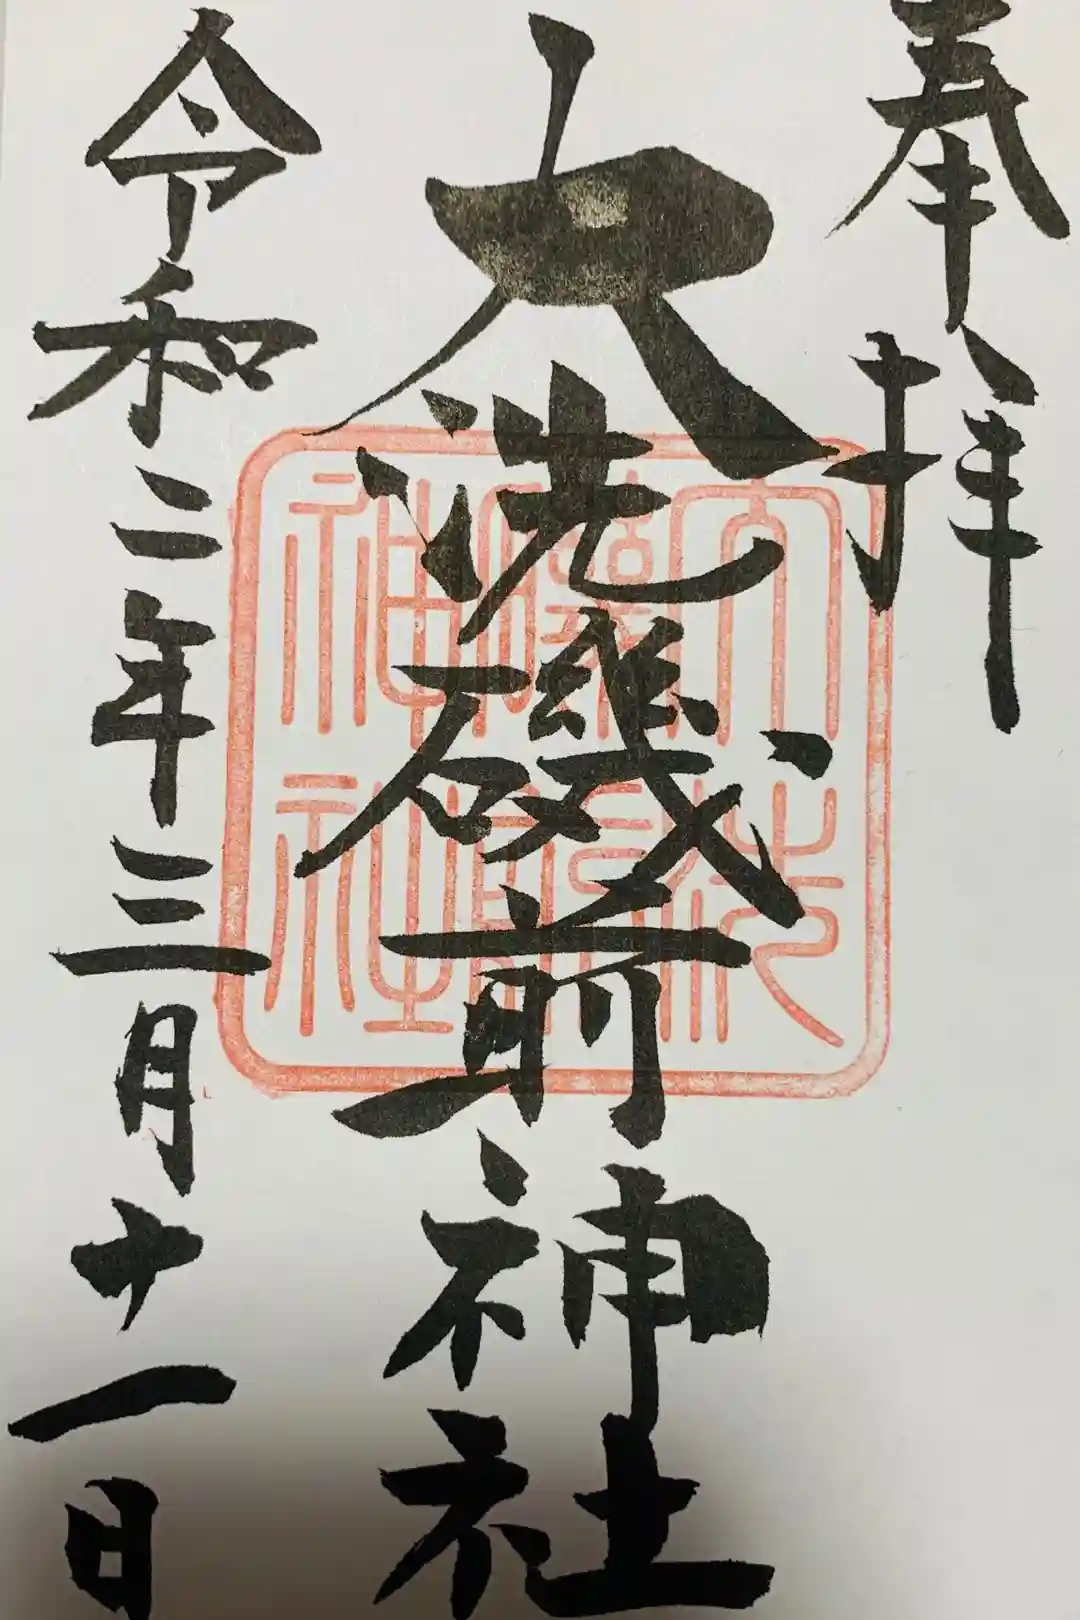 奉拝
大洗磯前神社
大洗磯前神社
令和二年三月十一日